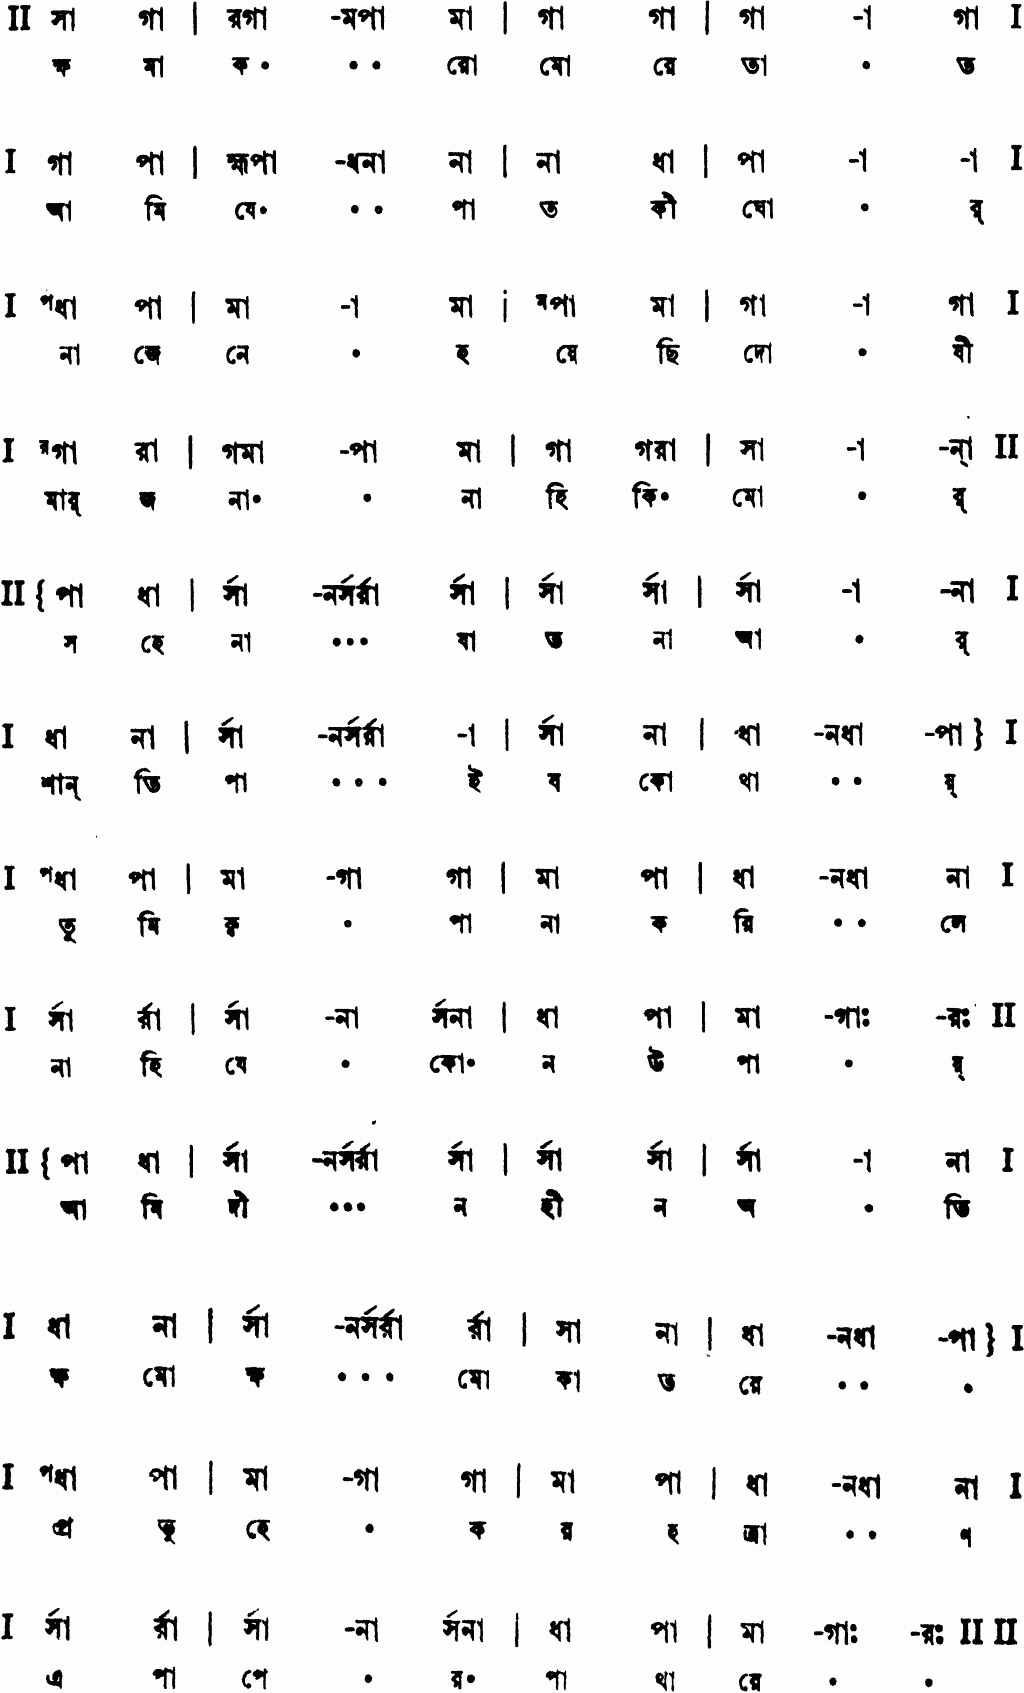 II সা গা | রগা -মপা মা | গা গা | গা -া গা I
ক্ষ মা ক • • • রো মো রে তা • ত
I গা পা | হ্মপা -ধনা না | না ধা | পা -া -া I
আ মি যে• • • পা ত কী ঘো • র্
I পধা পা | মা -া মা | মপা মা | গা -া গা I
না জে নে • হ য়ে ছি দো • ষী
I রগা রা | গমা -পা মা | গা গরা | সা -া -ন্া II
মার্ জ না• • না হি কি• মো • র্
II { পা ধা | র্সা -নর্সর্রা র্সা | র্সা র্সা | র্সা -া -না I
স হে না ••• যা ত না আ • র্
I ধা না | র্সা -নর্সর্রা -া | র্সা না | ধা -নধা -পা } I
শান্ তি পা • • • ই ব কো থা • • য়্
I পধা পা | মা -গা গা | মা পা | ধা -নধা না I
তু মি কৃ • পা না ক রি • • লে
I র্সা র্রা | র্সা -না র্সনা | ধা পা | মা -গাঃ -রঃ II
না হি যে • কো• ন উ পা • য়্
II { পা ধা | র্সা -নর্সর্রা র্সা | র্সা র্সা | র্সা -া না I
আ মি দী ••• ন হী ন অ • তি
I ধা না | র্সা -নর্সর্রা র্রা | সা না | ধা -নধা -পা } I
ক্ষ মো ক্ষ • • • মো কা ত রে • • •
I পধা পা | মা -গা গা | মা পা | ধা -নধা না I
প্র ভু হে • ক র হ ত্রা • • ণ
I র্সা র্রা | র্সা -না র্সনা | ধা পা | মা -গাঃ -রঃ II II
এ পা পে • র• পা থা রে • •